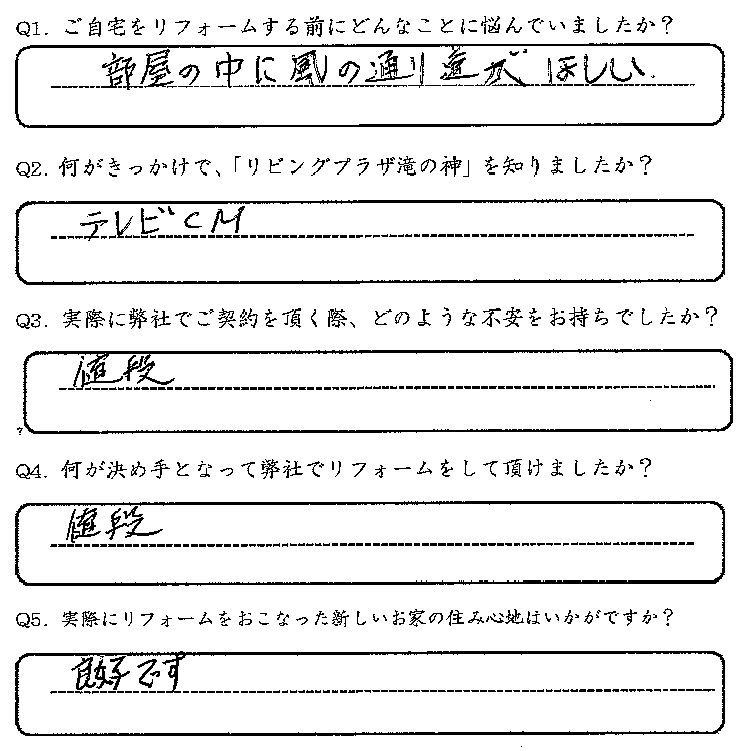 Q1. ご自宅をリフォームする前にどんなことに悩んでいましたか？
部屋の中に風の通り道がほしい.
Q2. 何がきっかけで、「リビングプラザ滝の神」を知りましたか？
テレビCM
Q3. 実際に弊社でご契約を頂く際、どのような不安をお持ちでしたか？
値段
?
Q4. 何が決め手となって弊社でリフォームをして頂けましたか？
値段
Q5. 実際にリフォームをおこなった新しいお家の住み心地はいかがですか？
良好です